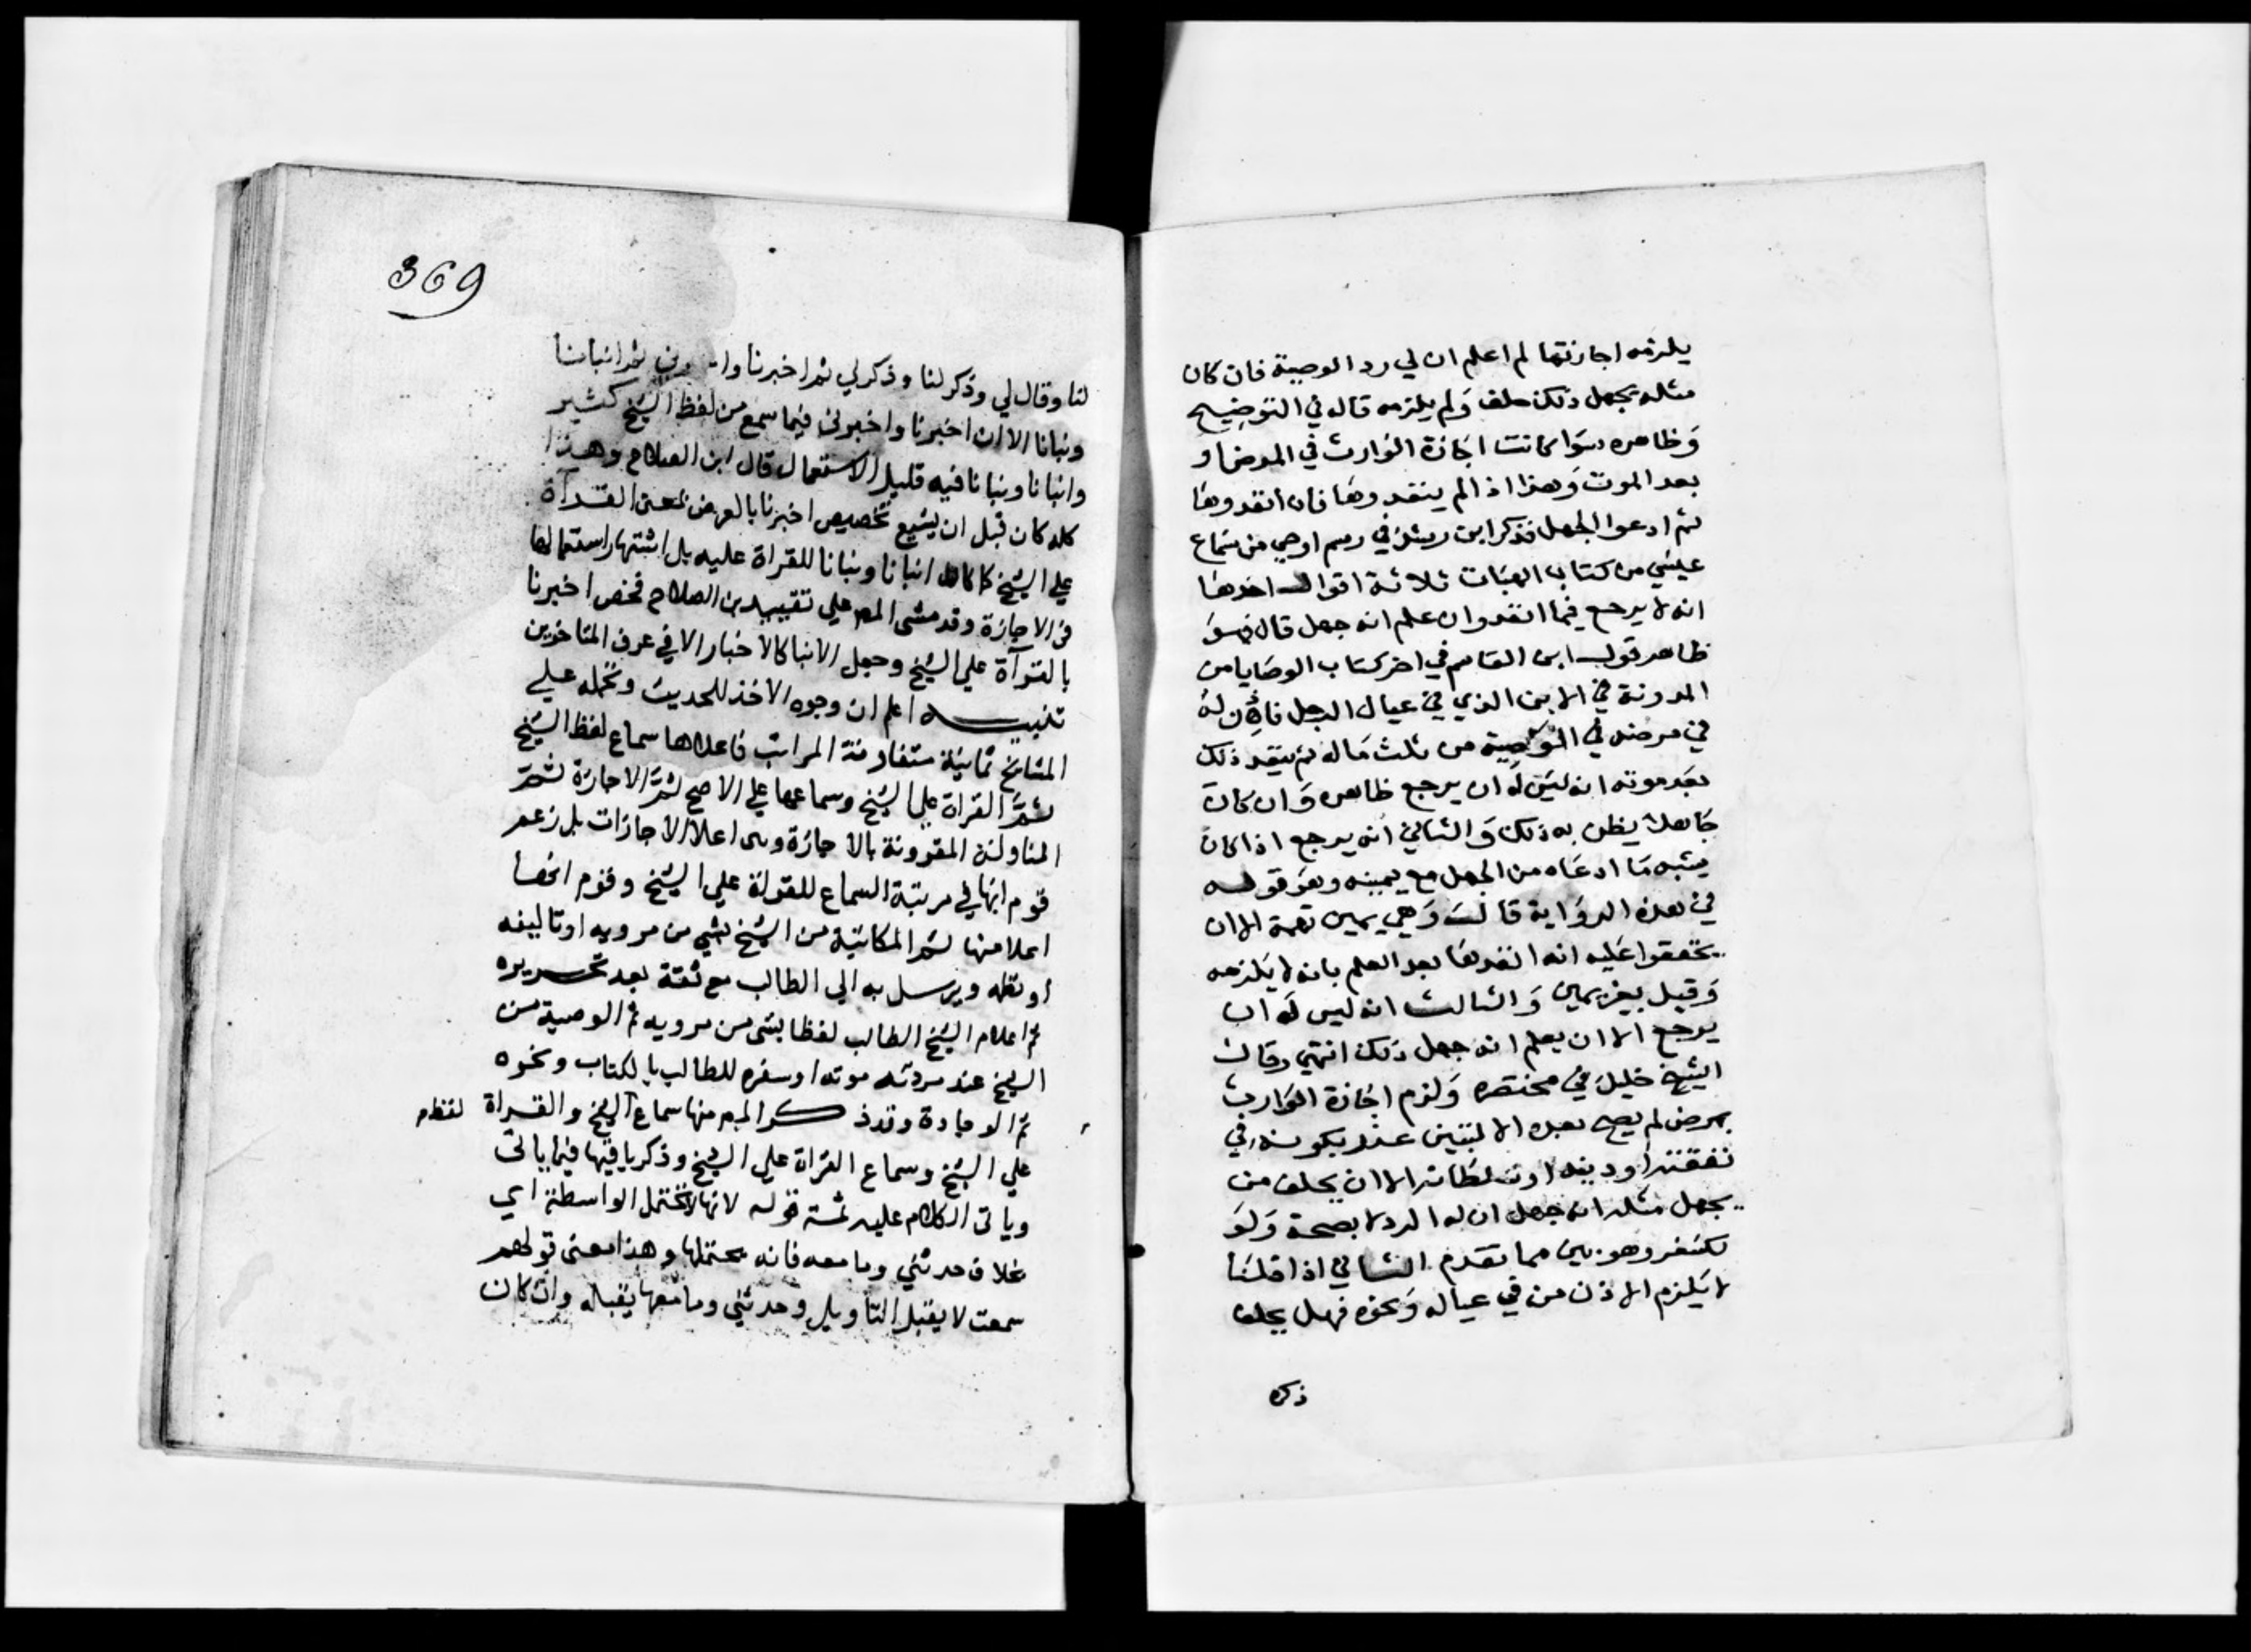 يلزمه اجازتها لم اعلم ان لي رد الوصية فان كان
مثله يجهل ذلك حلف ولم يلزمه قاله في التوضيح
وظاهره سوا كانت اجازة الوارث في المرض او
بعد الموت وهذا اذا لم ينفذوها فان انفذوها
ثم ادعوا الجهل فذكر ابن رشد في رسم اوصي من سماع
عيسي من كتاب الهبات ثلاثة اقوال احدها
انه لا يرجع فيما انفذ وان علم انه جهل قال وهو
ظاهر قول ابن القاسم في اخر كتاب الوصايا من
المدونة في الابن الذي في عيال الرجل فاذن له
في مرضه في الوصية من ثلث ماله ثم ينفذ ذلك
بعد موته انه ليس له ان يرجع ظاهره وان كان
جاهلا يظن به ذلك والثاني انه يرجع اذا كان
يشبه ما ادعاه من الجهل مع يمينه وهو قوله
في هذه الرواية قالت وهي يمين تهمة الا ان
يحققوا عليه انه انفدها بعد العلم بانه لا يلزمه
وقيل بغير يمين والثالث انه ليس له ان
يرجع الا ان يعلم انه جهل ذلك انتهي وقال
الشيخ خليل في مختصره ولزم اجازة الوارث
بمرض لم يصح بعده الا لتبين عذر بكونه في
نفقته او دينه او سلطانه الا ان يحلف من
يجهل مثله انه جهل ان له الرد لا بصحة ولو
لكسفر وهو بين مما تقدم الثاني اذا قلنا
لا يلزم الاذن من في عياله ونحوه فهل يحلف
ذكره
369
لنا وقال لي وذكر لنا وذكر لي ثم اخبرنا ثم انبانا
ونبانا الا ان اخبرنا واخبرني فيما سمع من لفظ الشيخ كثير
وانبانا ونبانا فيه قليل الاستعمال قال ابن الصلاح وهذا
كله كان قبل ان يشيع تخصيص اخبرنا بالعرض لمعنى القراة
علي الشيخ انبانا ونبانا للقراة عليه بل اشتهار استعمالها
في الاجازة وقد مشى المص علي تقييد بن الصلاح فخص اخبرنا
بالقراة علي الشيخ وجعل الانبا كالاخبار الا في عرف المتاخرين
تنبيه اعلم ان وجوه الاخذ للحديث وتحمله علي
المشايخ ثمانية متفاوتة المراتب فاعلاها سماع لفظ الشيخ
ثم القراة علي الشيخ وسماعها علي الاصح ثم الاجازة ثم
المناولة المقرونة بالاجازة وهي اعلا الاجازات بل زعم
قوم انها في مرتبة السماع للقراة علي الشيخ وقوم انها
اعلا منها ثم المكاتبة من الشيخ بشي من مرويه او تاليفه
او نظمه ويرسل به الي الطالب مع ثقة بعد تحريره
ثم اعلام الشيخ الطالب لفظا بشي من مرويه ثم الوصية من
الشيخ عند موته او سفره للطالب بالكتاب ونحوه
ثم الوجادة وقد ذكر المص منها سماع الشيخ والقراة
لفظ م
علي الشيخ وسماع القراة علي الشيخ وذكر باقيها فيما ياتي
وياتي الكلام عليه ثمة قوله لانها لا تحتمل الواسطة اي
بخلاف حدثني وما معه فانه يحتملها وهذا معنى قولهم
سمعت لا يقبل التاويل وحدثني وما معها يقبله وان كان